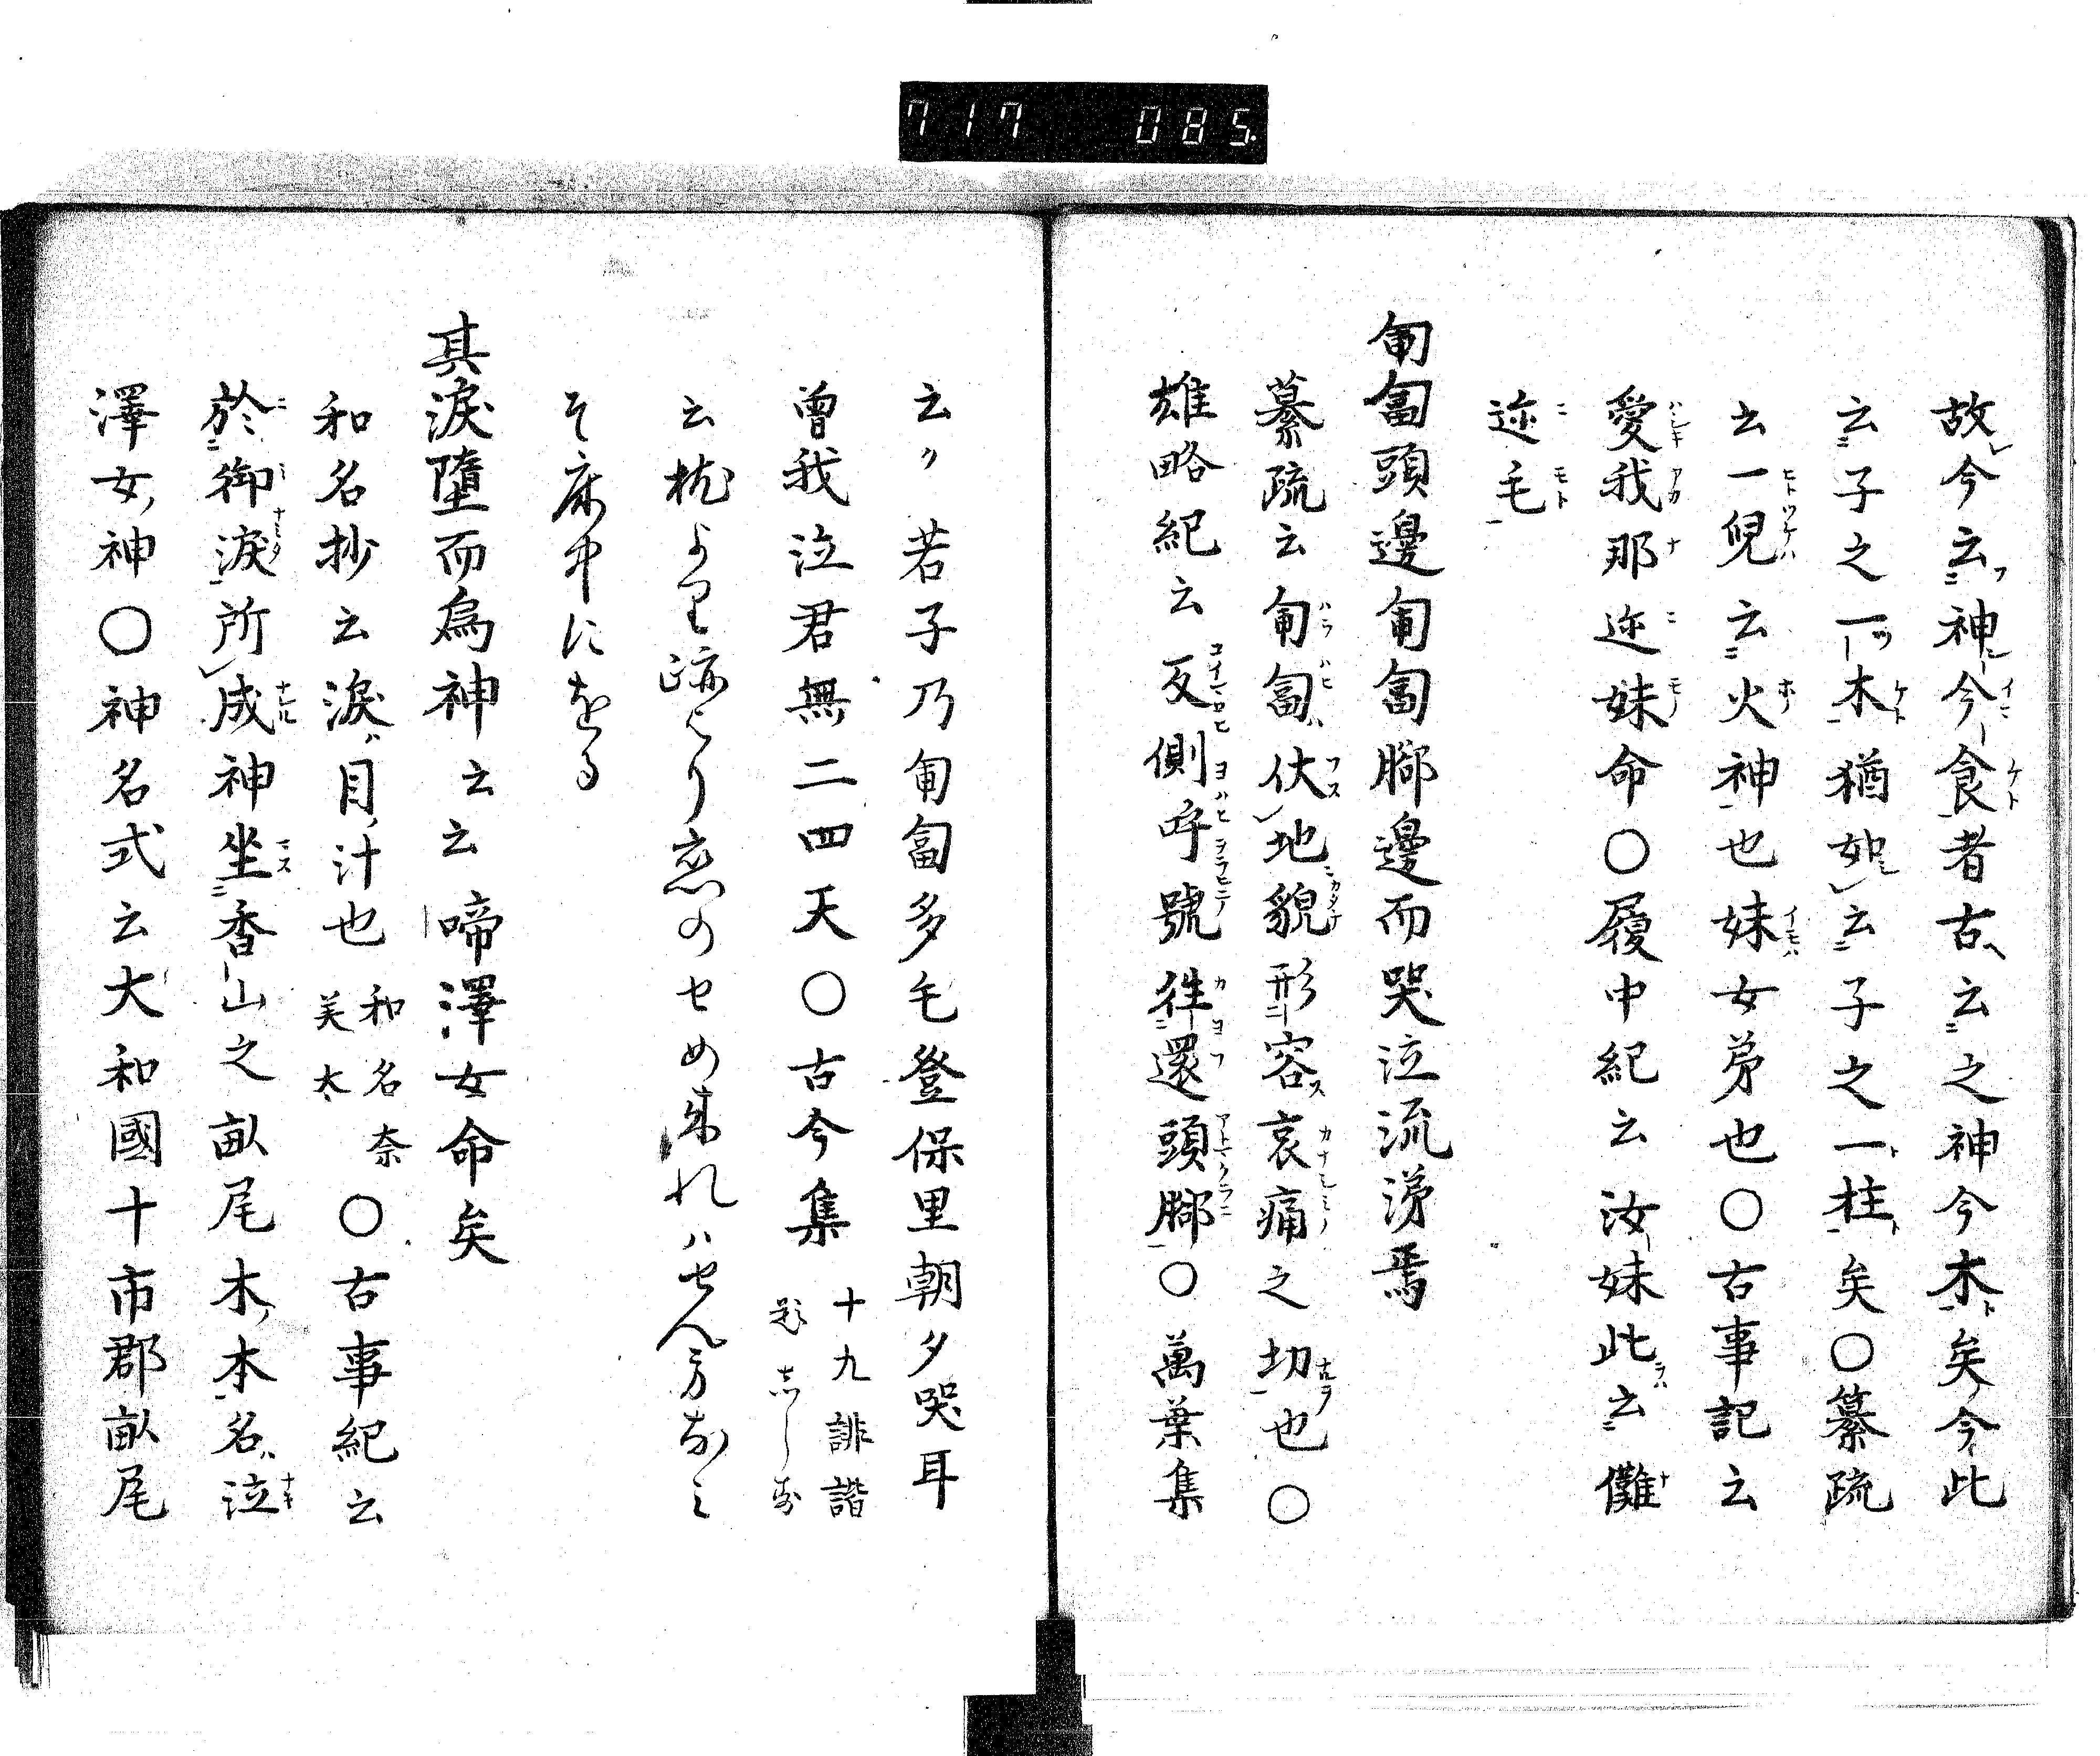 717 085
故今云神今食者古云之神今木矣今此
云子之一木猶如云子之一柱矣〇纂疏
云一兒云火神也妹女弟也〇古事記云
愛我那迩妹命〇履中紀云汝妹此云儺
迩毛
匍匐頭邊匍匐脚邊而哭泣流涕焉
纂疏云匍匐伏地貌形容哀痛之切也〇
雄略紀云反側呼號徃還頭脚〇萬葉集
云々若子乃匍匐多毛登保里朝夕哭耳
曾我泣君無二四天〇古今集 十九誹諧 題しらす
云枕より跡より恋のせめ来れハせん方なみ
そ床中にをる
其淚墮而為神云云啼澤女命矣
和名抄云淚目汁也 和名奈美太 〇古事紀云
於御淚所成神坐香山之畝尾木本名泣
澤女神〇神名式云大和國十市郡畝尾